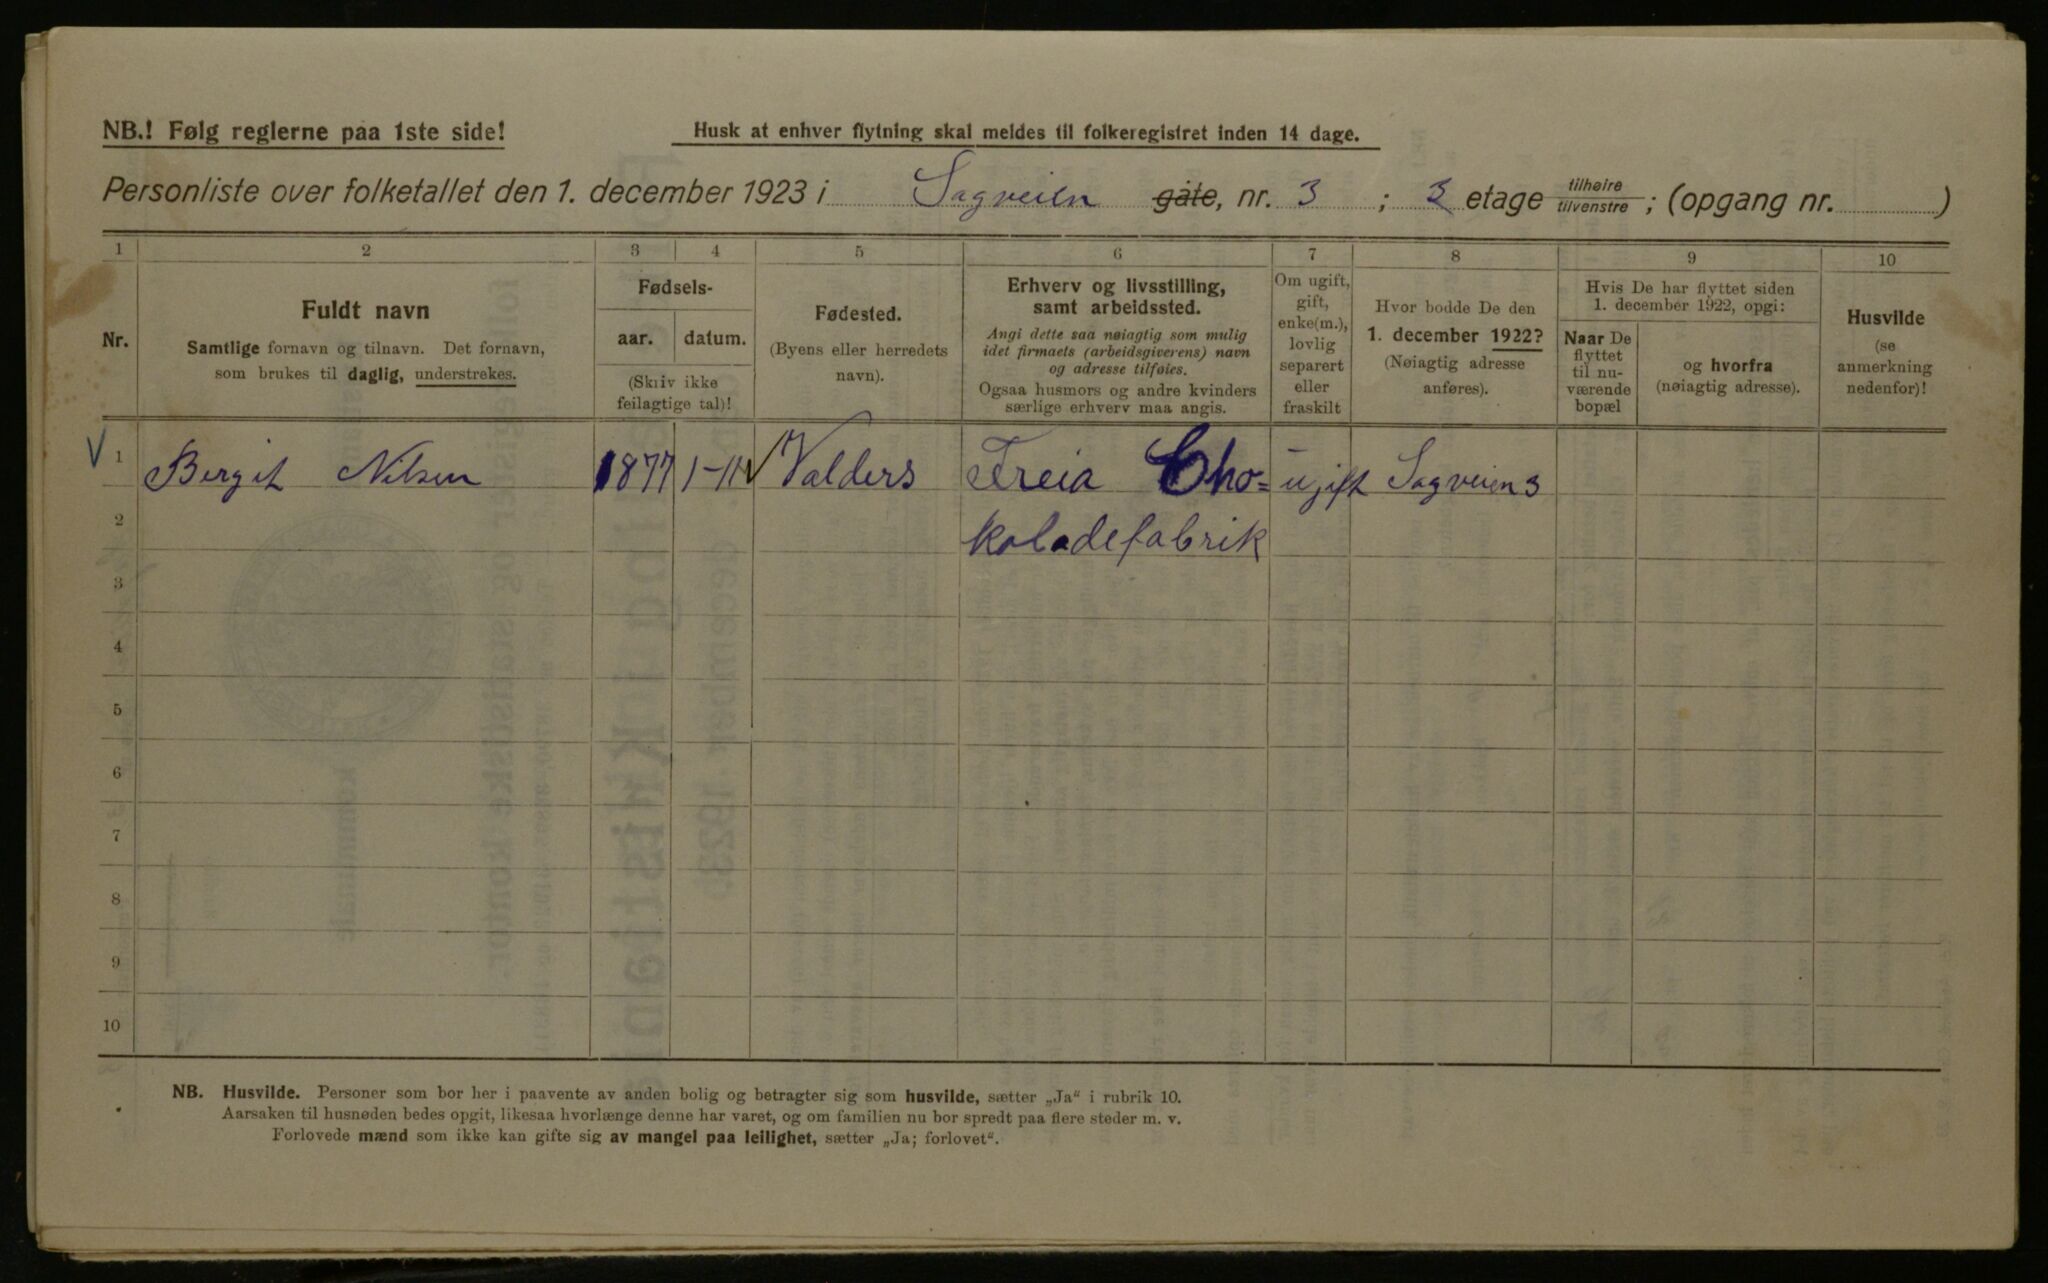 NB.! Følg reglerne paa 1ste side!
Husk at enhver flytning skal meldes til folkeregistret inden 14 dage.
Personliste over folketallet den 1. december 1923 i Sagveien gate, nr. 3 ; 3 etage tilhøire tilvenstre ; (opgang nr. )
1 2 3 4 5 6 7 8 9 10
Nr.
Fuldt navn
Samtlige fornavn og tilnavn. Det fornavn,
som brukes til daglig, understrekes.
Fødsels-
aar. datum.
(Skriv ikke
feilagtige tal)!
Fødested.
(Byens eller herredets
navn).
Erhverv og livsstilling,
samt arbeidssted.
Angi dette saa nøiagtig som mulig
idet firmaets (arbeidsgiverens) navn
og adresse tilføies.
Ogsaa husmors og andre kvinders
særlige erhverv maa angis.
Om ugift,
gift,
enke(m.),
lovlig
separert
eller
fraskilt
Hvor bodde De den
1. december 1922?
(Nøiagtig adresse
anføres).
Hvis De har flyttet siden
1. december 1922, opgi:
Naar De
flyttet
til nu-
værende
bopæl
og hvorfra
(nøiagtig adresse).
Husvilde
(se
anmerkning
nedenfor)!
1 Bergit Nilsen 1877 1-11 Valders Freia Cho= ugift Sagveien 3
2 koladefabrik
3
4
5
6
7
8
9
10
NB. Husvilde. Personer som bor her i paavente av anden bolig og betragter sig som husvilde, sætter „Ja" i rubrik 10.
Aarsaken til husnøden bedes opgit, likesaa hvorlænge denne har varet, og om familien nu bor spredt paa flere steder m. v.
Forlovede mænd som ikke kan gifte sig av mangel paa leilighet, sætter „Ja; forlovet".